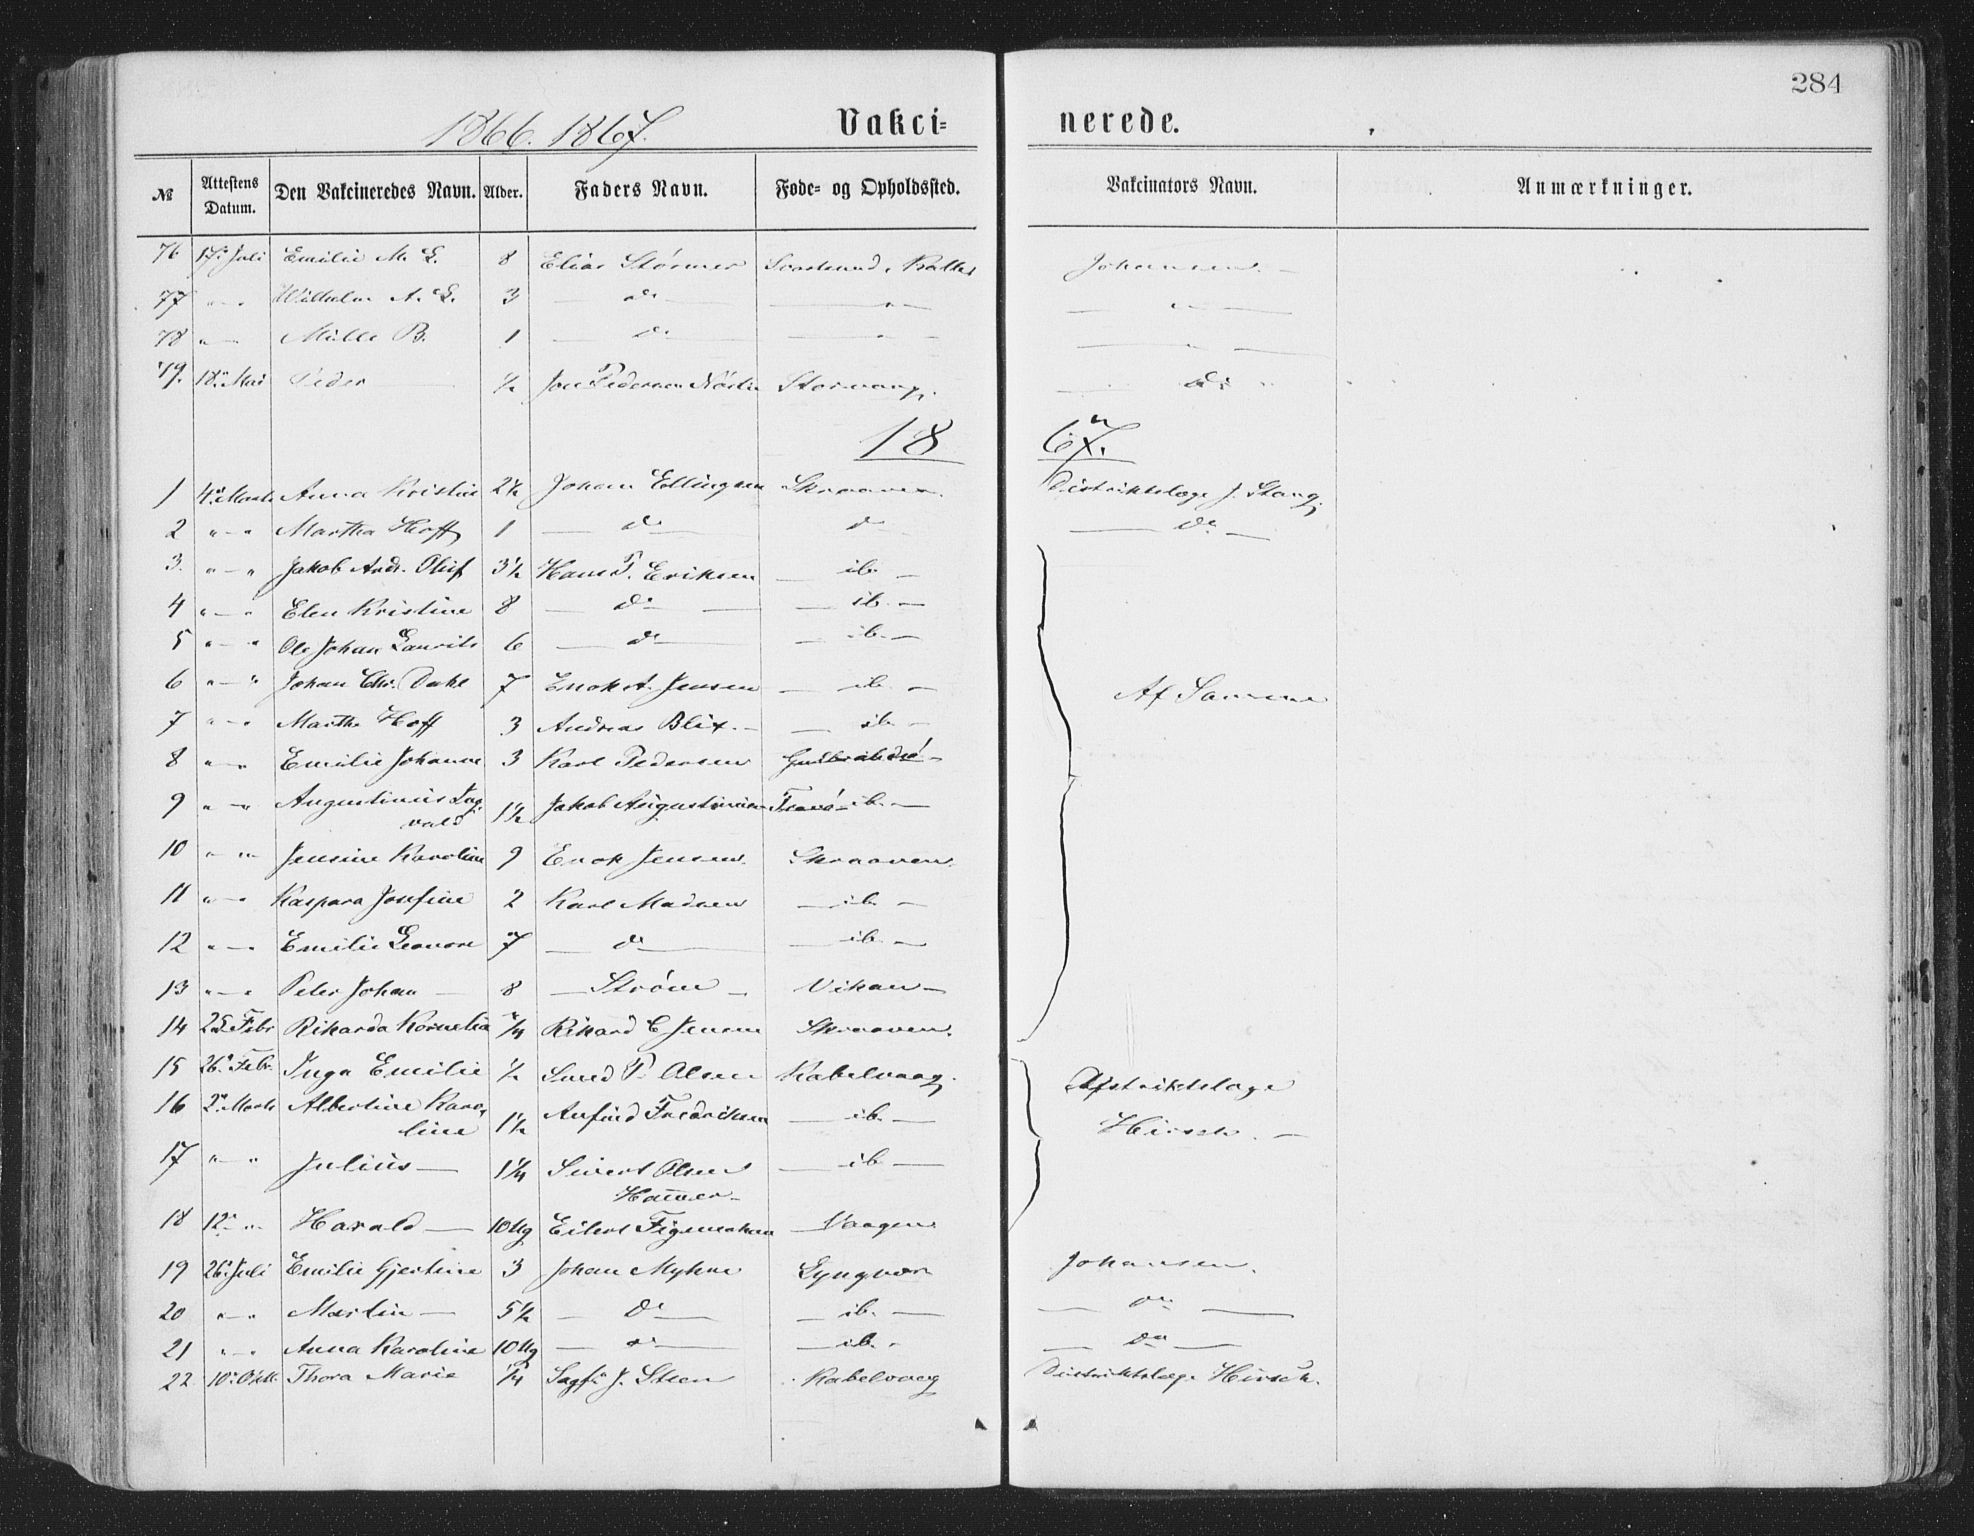 284
1866. 1867. Vakci= nerede.
№ Attestens Datum. Den Vakcineredes Navn. Alder. Faders Navn. Føde= og Opholdssted. Vakcinators Navn. Anmærkninger.
76 17. Juli Emilie M. L. 8 Elias Størmer Johansen. —
77 " — " A. L. 3 — do — — " — — " —
78 " — B. 1 — do — — " — — " —
79. 18. Mai Peder — ½ Pedersen Storvaag. — do "
18 67.
1 4. Marts Anna Kristine 2½ Johan Ellingsen Skraaven. Distriktslæge J. Stang.
2 " — " Martha Hoff 1 — do — do — do —
3. " — " Jakob Andr. Oluf 3½ Hans P. Eriksen — ib. —
4 " — " Elen Kristine 8 — do — — ib. —
5 " — " Ole Johan Laurits 6 — do — — ib. —
6 " — " Johan Chr. Dahl 7 Enok A. Jensen — ib. — Af Samme
7 " — " Marthe Hoff 3 Andreas Blix. — — ib. —
8 " — " Emilie Johanne 3 Karl Pedersen Guldbrandsø —
9 " — " Augustinius Dag-
vald 1½ Jakob Augustinusen ib. —
10 " — " Jensine Karoline 9 Enok Jensen. Skraaven.
11 " — " Kaspara Josefine 2 Karl Madsen — ib. —
12 " — " Emilie Leonore 7 — do — — ib. —
13 " — " Peter Johan — 8 — Strøm — Vikan —
14 25. Febr Rikarda Kornelia ¼ Rikard C Jensen Skraaven.
15 26. Febr. Inga Emilie ½ P. Olsen Kabelvaag. Distriktslæge
16 2. Marts Albertine Karo-
line 1½ Anfind Fredriksen — ib. — Hirsch. —
17 " — " Julius — 1¼ Sivert Olsen — ib. —
Hammer —
18 12. " Harald — 10 Ug Eilert Figenschau — Vaagen
19 26. Juli Emilie Gjertine 3 Johan Myhre Lyngvær Johansen.
20 " — " Martin — 5½ — do — — ib. — — do —
21 " — " Anna Karoline 10 Ug — do — — ib. — — do —
22. 10. Oktb. Thora Marie ¼ Sagf. J. Steen Kabelvaag Distriktslæge Hirsch.